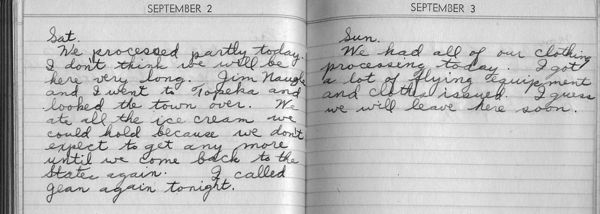 SEPTEMBER 2
Sat.
We processed partly today.
I don't think we will be
here very long. Jim Naugle
and I went to Topeka and
looked the town over. We
ate all the ice cream we
could hold because we don't
expect to get any more
until we come back to the
States again. I called
Jean again tonight.
SEPTEMBER 3
Sun.
We had all of our clothing
processing today. I got
a lot of flying equipment
and clothes issued. I guess
we will leave here soon.